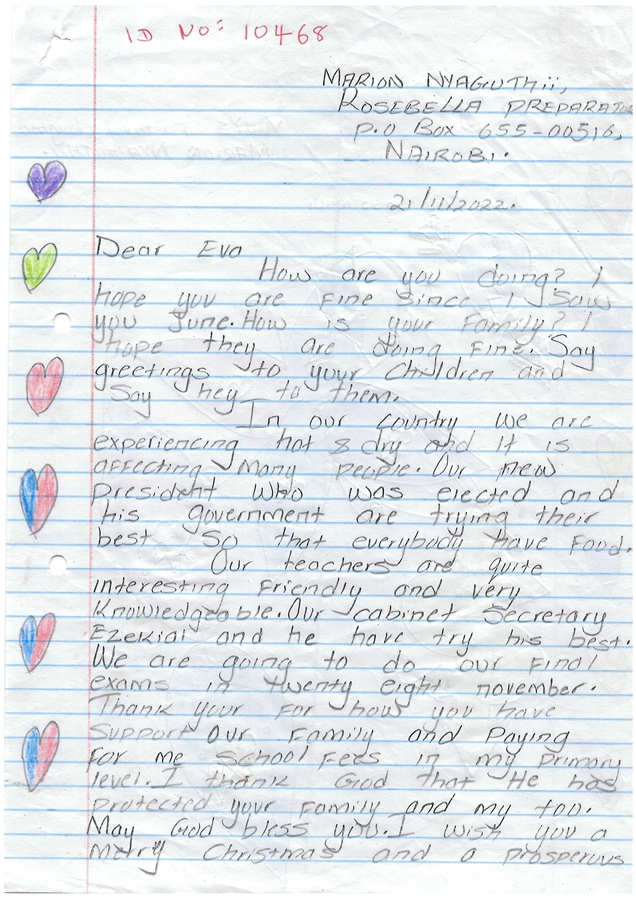 ID NO: 10468
MARION NYAGUTHii,
ROSEBELLA PREPARATO
P.O Box 655-00516,
NAIROBI.
21/11/2022.
Dear Eva
How are you doing? I
hope you are fine since I saw
you June. How is your family? I
hope they are doing fine. Say
greetings to your children and
Say hey to them.
In our country we are
experiencing hot & dry and it is
affecting many people. Our new
president who was elected and
his government are trying their
best so that everybody have food.
Our teachers are quite
interesting friendly and very
knowledgeable. Our cabinet secretary
Ezekial and he have try his best.
We are going to do our final
exams in twenty eight november.
Thank your for how you have
support our family and paying
for me school fees in my primary
level. I thank God that He has
protected your family and my too.
May God bless you. I wish you a
merry christmas and a prosperous